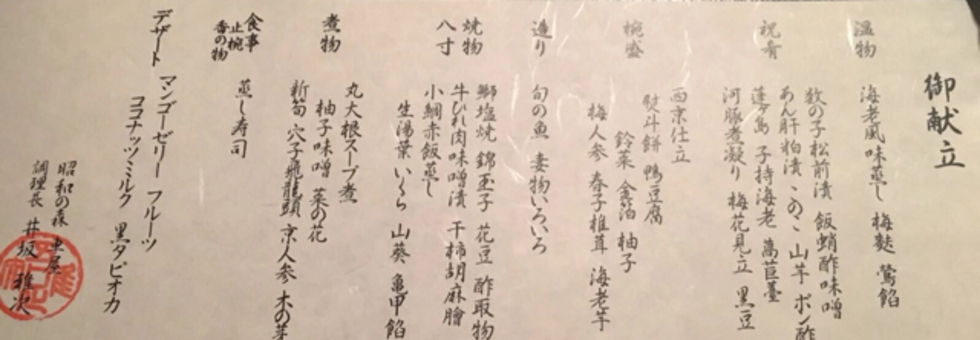 御献立
温物
海老風味蒸し 梅麩 鶯餡
祝肴
数の子松前漬 飯蛸酢味噌
あん肝粕漬 このこ 山芋 ポン酢
蓬々島 子持海老 萵苣薹
河豚煮凝り 梅花見立 黒豆
椀盛
西京仕立
熨斗餅 鴨豆腐
鈴菜 金箔 柚子
梅人参 春子椎茸 海老芋
造り
旬の魚 妻物いろいろ
焼物
八寸
鰤塩焼 錦玉子 花豆 酢取物
牛ひれ肉味噌漬 干柿胡麻膾
小鯛赤飯蒸し
生湯葉 いくら 山葵 亀甲餡
煮物
丸大根スープ煮
柚子味噌 菜の花
新筍 穴子飛龍頭 京人参 木の芽
食事
止椀
香の物
蒸し寿司
デザート
マンゴーゼリー フルーツ
ココナッツミルク 黒タピオカ
昭和の森 車屋
調理長 井坂 雅次